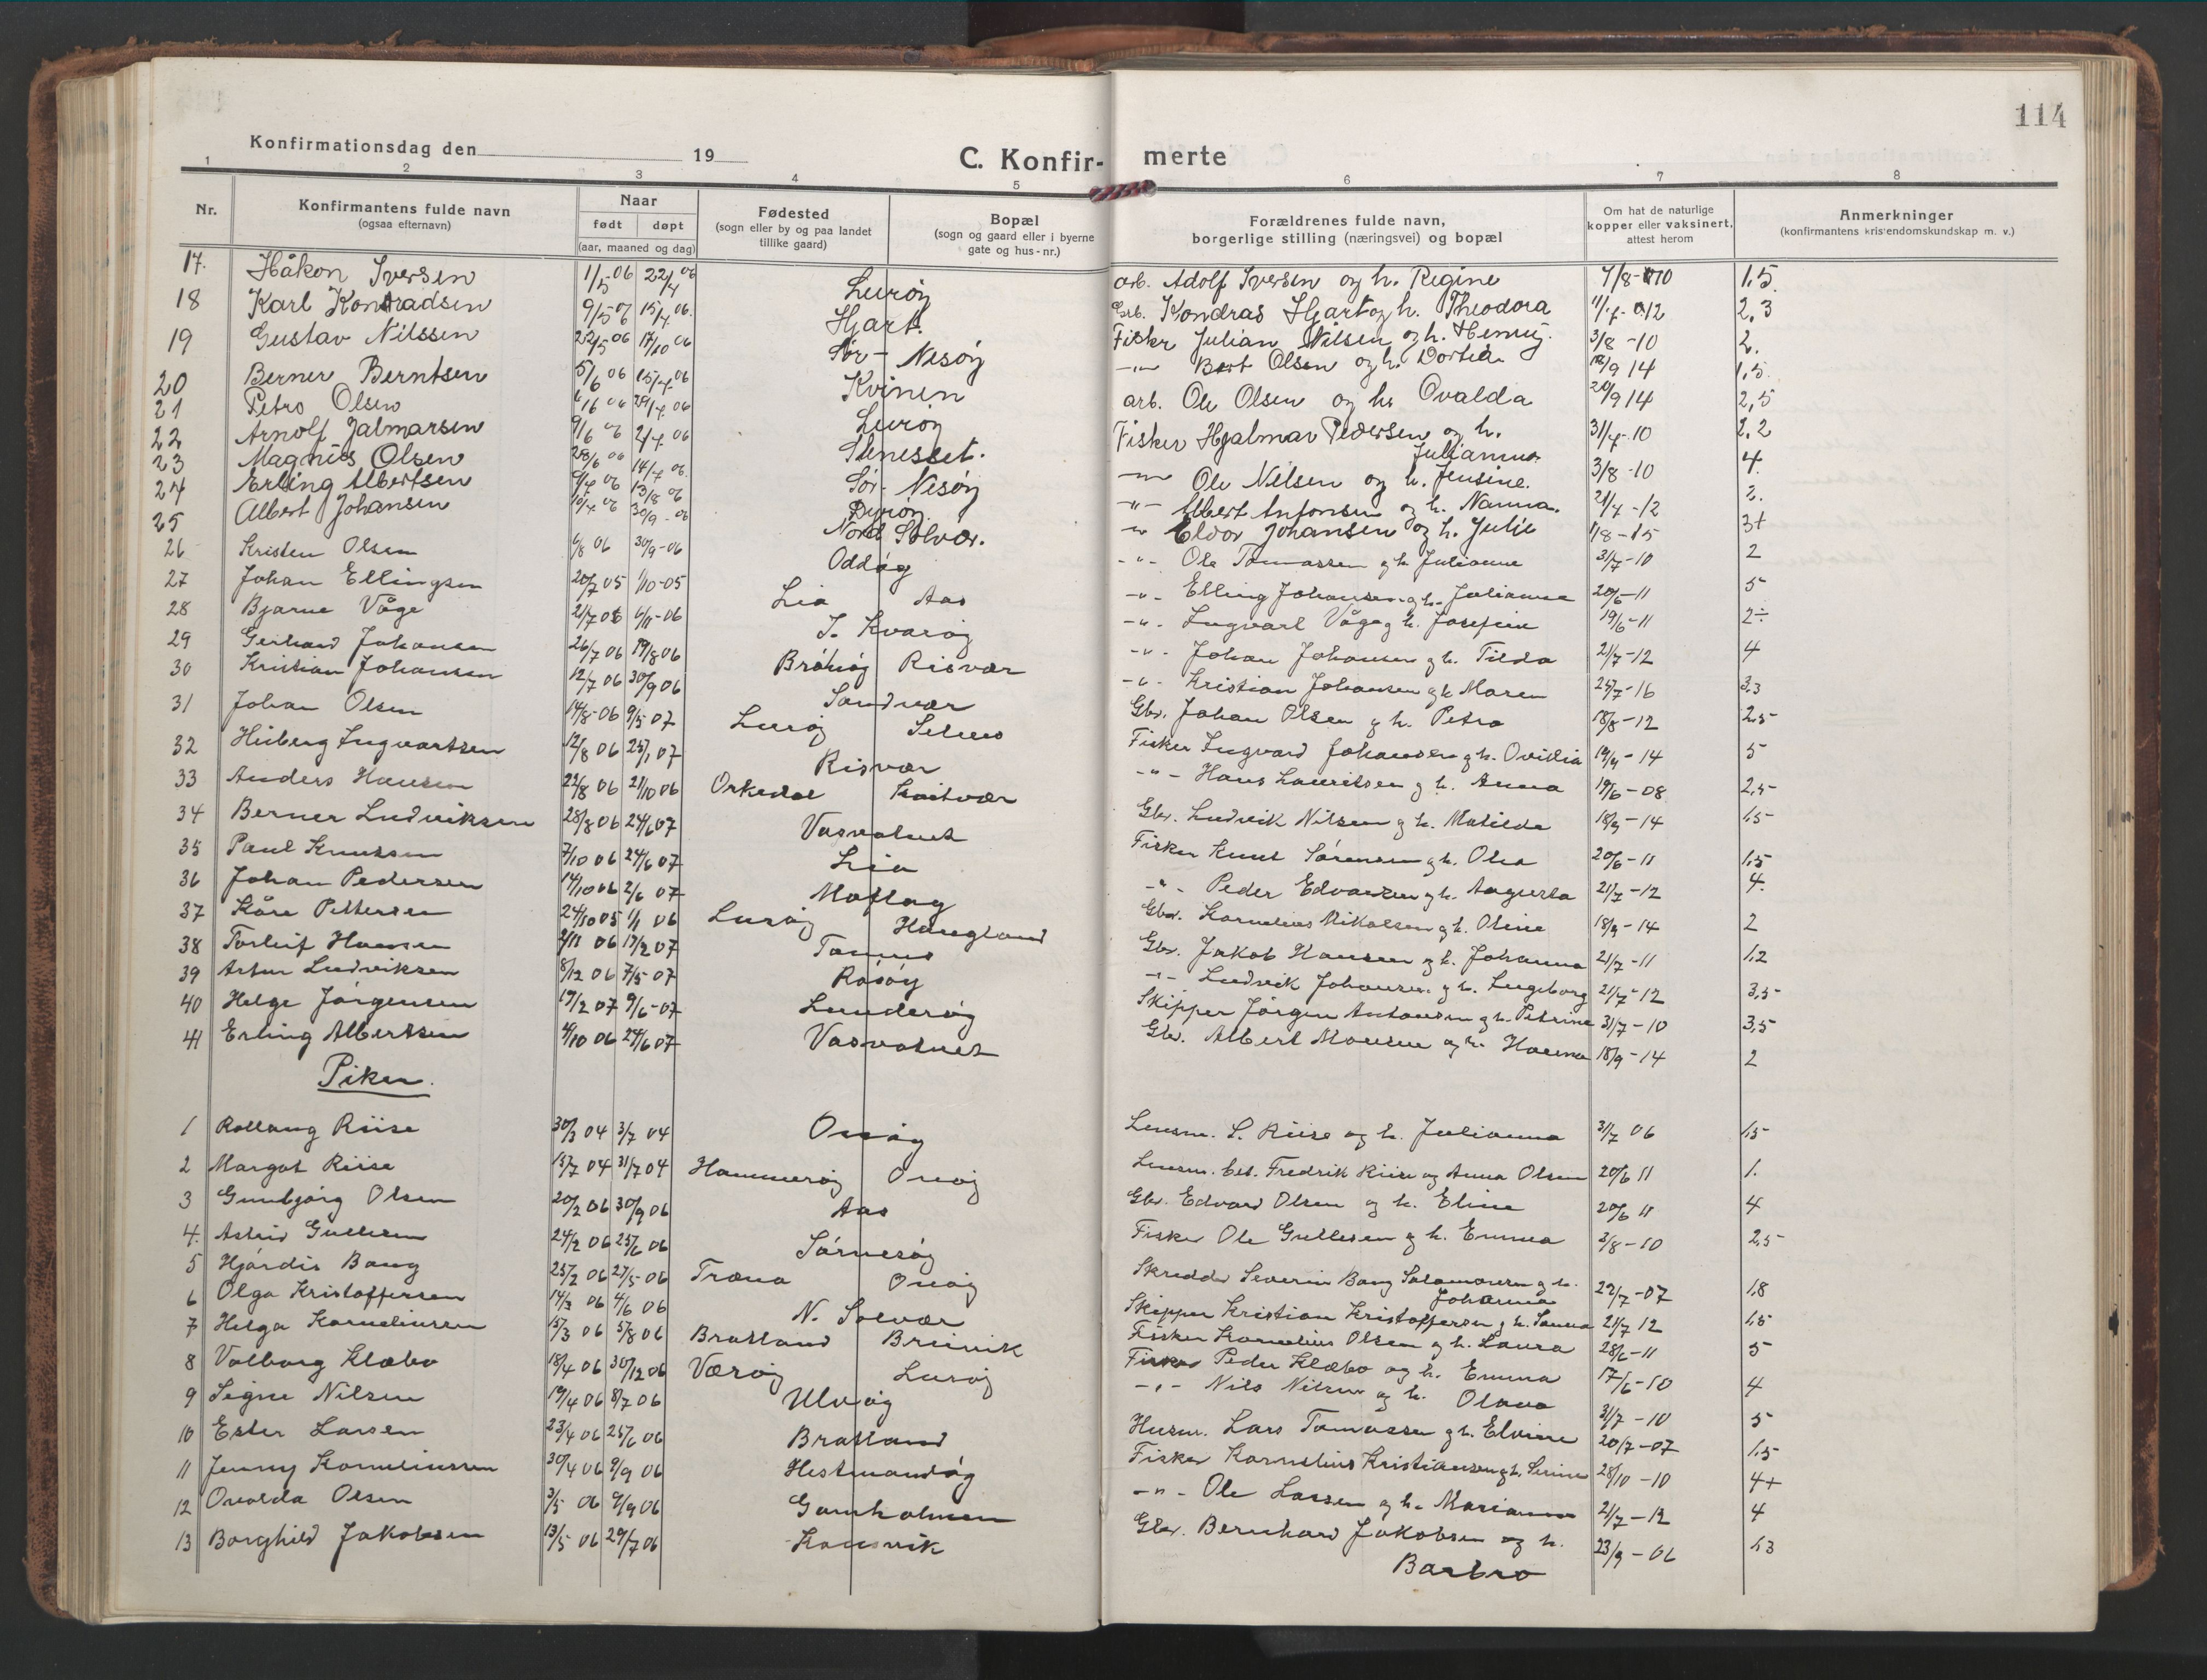 114
Konfirmationsdag den 19
C. Konfirmerte
1 2 3 4 5 6 7 8
Nr. Konfirmantens fulde navn (ogsaa efternavn) Naar født døpt (aar, maaned og dag) Fødested (sogn eller by og paa landet tillike gaard) Bopæl (sogn og gaard eller i byerne gate og hus-nr.) Forældrenes fulde navn, borgerlige stilling (næringsvei) og bopæl Om hat de naturlige kopper eller vaksinert, attest herom Anmerkninger (konfirmantens kristendomskundskap m. v.)
17. Håkon Iversen 1/5 06 22/4 06 Lurøy arb. Adolf Iversen og h. Regine 7/8-10 1,5.
18 Karl Konradsen 9/5 06 15/7 06. Hjart. Kondras Hjart og h. Theodora 12 2,3
19 Gustav Nilssen 22/5 06 17/10 06 Sør-Nesøy Fisker Julian Nilsen og h. 3/8-10 2.
20 Berner Berntsen 5/6 06 15/7 06 Kvinen -"- Olsen og h. Dortea 18/9 14 1,5.
21 Petro Olsen 06 29/7 06 Lurøy arb. Ole Olsen og h. Ovalda 20/9 14 2,5
22 Arnolf Jalmarsen 9/6 06 2/7 06 Stenesset. Fisker Hjalmar Pedersen og h. Julianna 31/7-10 2,2
23 Magnus Olsen 28/6 06 14/7 06. Sør-Nesøy -"- Ole Nilsen og h. Jensine. 3/8-10 4.
24 Erling Albertsen 06 13/8 06 -"- Albert Antonsen og h. Nanna. 21/7-12 2.
25 Albert Johansen 10/7 06 30/9-06 Nord Solvær. -"- Eldor Johansen og h. Julie 1/8-15 3+
26 Kristen Olsen 6/8 06 30/9-06 Oddøy -"- Ole Tomassen og h. Julianne 31/7-10 2
27 Johan Ellingsen 20/7 05 1/10-05 Lia Aas -"- Elling Johansen og h. Julianna 20/6-11 5
28 Bjarne Våge 21/7 06 4/11-06 S. Kvarøy -"- Ingvarl Våge og h. Josefine 19/6-11 2÷
29 Gerhard Johansen 26/7 06 19/8 06 Bråtøy Risvær -"- Johan Johansen og h. Tilda 21/7-12 4
30 Kristian Johansen 12/7 06 30/9 06 Sandvær -"- Kristian Johansen og h. Maren 25/7-16 3,3
31 Johan Olsen 14/8-06 9/5-07 Lurøy Selnes Gbr. Johan Olsen og h. Petra 18/8-12 2,5
32 Heiberg Ingvartsen 12/8 06 25/1 07 Risvær Fisker Ingvard Johansen og h. Ovidia 19/9-14 5
33 Anders Hansen 22/8 06 21/10 06 Orkedal -"- Hans Lauritsen og h. Anna 19/6-08 2,5
34 Berner Ludviksen 28/8 06 24/6 07 Vasvatnet Gbr. Ludvik Nilsen og h. Matilde 18/9-14 1,5
35 Paul Knutsen 7/10 06 24/6 07 Lia Fisker Knut Sørensen og h. Olea 20/6-11 1,5
36 Johan Pedersen 14/10 06 2/6 07 Moflag -"- Peder Edvardsen og h. Augusta 21/7-12 4.
37 Kåre Pettersen 24/10 05 1/1 06 Lurøy Haugland Gbr. Kornelius Mikalsen og h. Oline 18/9-14 2
38 Torleif Hansen 2/11 06 17/2 07 Tonnes Gbr. Jakob Hansen og h. Johanna 21/7-11 1,2
39 Artur Ludviksen 8/12 06 7/5-07 Råsøy -"- Ludvik Johansen og h. Ingeborg 21/7-12 3,5
40 Helge Jørgensen 19/2 07 9/6-07 Lunderøy Skipper Jørgen Antonsen og h. Petrine 31/7-10 3,5
41 Erling Albertsen 4/10 06 24/6 07 Vasvatnet Gbr. Albert Monsen og h. Hanna 18/9-14 2
Piker.
1 Rollaug Riise 30/3 04 3/7 04 Onøy Lensm. S. Riise og h. Julianna 31/7 06 1,5
2 Margot Riise 15/7 04 31/7 04 Hammerøy Onøy Lensm. bet. Fredrik Riise og Anna Olsen 20/6 11 1.
3 Gunbjørg Olsen 20/2 06 30/9 06 Aas Gbr. Edvard Olsen og h. Eline 20/6 11 4
4. Astrid Gullesen 24/2 06 25/6 06 Sørnesøy Fisker Ole Gullesen og h. Emma 3/8-10 2,5
5 Hjørdis Bang 25/2 06 27/5-06 Træna Onøy Skredder Severin Bang Salamonsen og h. Johanna 22/7-07 1,8
6 Olga Kristoffersen 14/3 06 4/6 06 N. Solvær Skipper Kristian Kristoffersen og h. Sanna 21/7 12 1,5
7 Helga Korneliussen 15/3 06 5/8 06 Bratland Breivik Fisker Kornelius Olsen og h. Laura 28/6-11 5
8 Valborg Klæbo 18/4 06 30/12 06 Værøy Lurøy Fisker Peder Klæbo og h. Emma 17/6-10 4
9 Signe Nilsen 19/4 06 8/7 06 Ulvøy -"- Nils Nilsen og h. Olava 31/7-10 5
10 Ester Larsen 23/4 06 25/6 06 Bratland Husm. Lars Tomassen og h. Elvine 20/7-07 1,5
11 Jenny Korneliussen 30/4 06 9/9 06 Hestmandøy Fisker Kornelius Kristiansen og h. Serine 28/10-10 4+
12 Ovalda Olsen 3/5 06 9/9 06 Gamholmen -"- Ole Larsen og h. Marianna 21/7-12 4
13 Borghild Jakobsen 13/5 06 29/7 06 Konsvik Gbr. Bernhard Jakobsen og h. Barbro 23/9-06 1,3